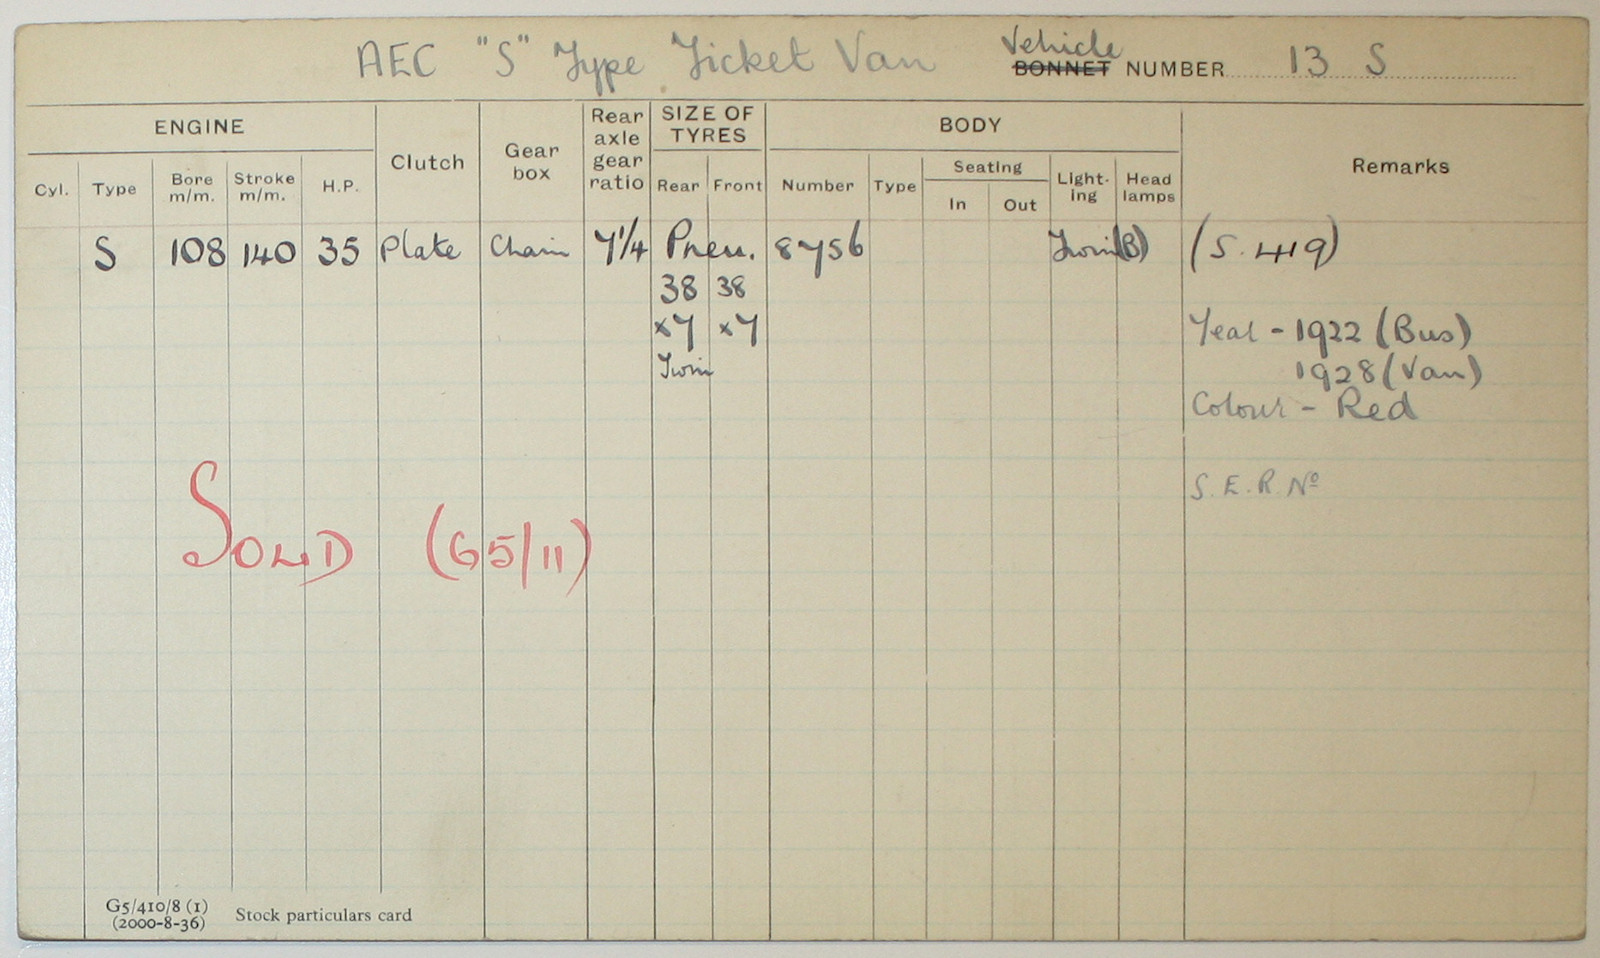 AEC "S" Type Ticket Van Vehicle BONNET NUMBER 13 S
ENGINE Clutch Gear box Rear axle gear ratio SIZE OF TYRES BODY Remarks
Cyl. Type Bore m/m. Stroke m/m. H.P. Rear Front Number Type Seating In Out Light-ing Head lamps
S 108 140 35 Plate Chain 7¼ Pneu. 8756 Twin (B) (S.419)
38 38
x7 x7 Year - 1922 (Bus)
Twin 1928 (Van)
Colour - Red
S.E.R. Nº
SOLD (G5/11)
G5/410/8 (1)
(2000-8-36) Stock particulars card